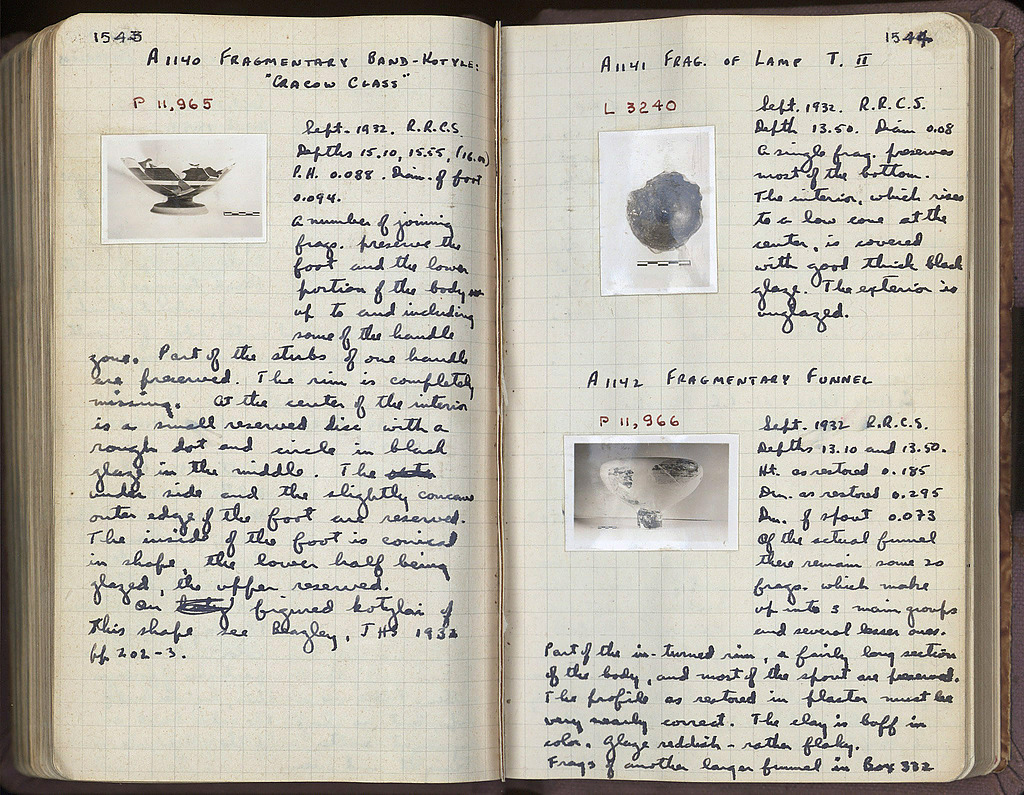 1543
A 1140 FRAGMENTARY BAND-KOTYLE:
"CRACOW CLASS"
P 11,965
Sept. 1932. R.R.C.S.
Depths 15.10, 15.55, (16.00)
P.H. 0.088. Diam. of foot
0.094.
A number of joining
frags. preserve the
foot and the lower
portion of the body
up to and including
some of the handle
zone. Part of the stubs of one handle
are preserved. The rim is completely
missing. At the center of the interior
is a small reserved disc with a
rough dot and circle in black
glaze in the middle. The
under side and the slightly concave
outer edge of the foot are reserved.
The inside of the foot is conical
in shape, the lower half being
glazed, the upper reserved.
On figured kotylai of
this shape see Beazley, JHS 1932
pp 202-3.
1544
A 1141 FRAG. OF LAMP T. II
L 3240
Sept. 1932. R.R.C.S.
Depth 13.50. Diam 0.08
A single frag. preserves
most of the bottom.
The interior, which rises
to a low cone at the
center, is covered
with good thick black
glaze. The exterior is
unglazed.
A 1142 FRAGMENTARY FUNNEL
P 11,966
Sept. 1932 R.R.C.S.
Depths 13.10 and 13.50.
Ht. as restored 0.185
Dm. as restored 0.295
Dm. of spout 0.073
Of the actual funnel
there remain some 20
frags. which make
up into 3 main groups
and several lesser ones.
Part of the in-turned rim, a fairly long section
of the body, and most of the spout are preserved.
The profile as restored in plaster must be
very nearly correct. The clay is buff in
color. Glaze reddish - rather flaky.
Frags of another larger funnel in Box 332